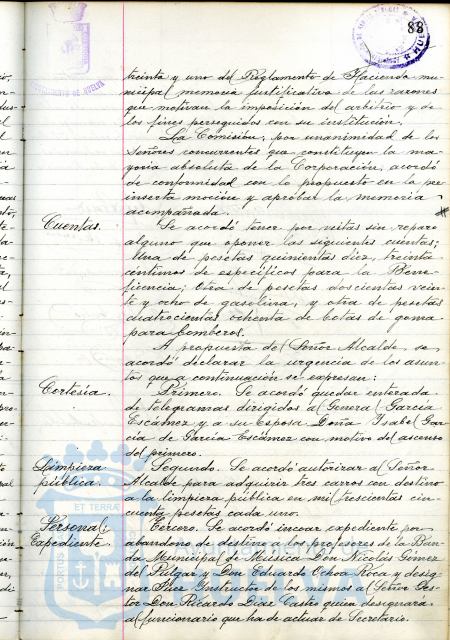 88
AYUNTAMIENTO DE HUELVA
treinta y uno del Reglamento de Hacienda mu-
nicipal memoria justificativa de las razones
que motivan la imposición del arbitrio y de
los fines perseguidos con su institución.
La Comisión, por unanimidad de los
Señores concurrentes que constituyen la ma-
yoria absoluta de la Corporación, acordó
de conformidad con lo propuesto en la pre-
inserta moción y aprobar la memoria
acompañada.
Cuentas.
Se acordó tener por vistas sin reparo
alguno que oponer las siguientes cuentas;
Una de pesetas quinientas diez, treinta
centimos de específicos para la Bene-
ficencia; Otra de pesetas doscientas vein-
te y ocho de gasolina, y otra de pesetas
cuatrocientas ochenta de botas de goma
para bomberos.
A propuesta del Señor Alcalde, se
acordó declarar la urgencia de los asun-
tos que a continuación se expresan:
Cortesía.
Primero. Se acordó quedar enterada
de telegramas dirigidos al General García
Escámez y a su esposa Doña Isabel Gar-
cia de García Escámez con motivo del ascenso
del primero.
Limpieza
pública.
Segundo. Se acordó autorizar al Señor
Alcalde para adquirir tres carros con destino
a la limpieza pública en mil trescientas cin-
cuenta pesetas cada uno.
Personal:
Expediente
Tercero. Se acordó incoar expediente por
abandono de destino a los profesores de la Ban-
da Municipal de Música Don Nicolás Gómez
del Pulgar y Don Eduardo Ochoa Roca y desig-
nar Juez Instructor de los mismos al Señor Ges-
tor Don Ricardo Diaz Castro quien designará
al funcionario que ha de actuar de Secretario.
ET TERRAE
PORTUS